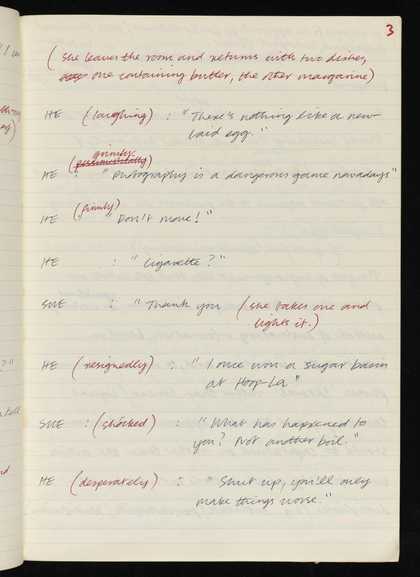 3
(She leaves the room and returns with two dishes,
one containing butter, the other margarine)
HE (laughing) : "There's nothing like a new-
laid egg."
grimly
HE (pessimistically) : "Photography is a dangerous game nowadays"
HE (firmly) " "Don't move!"
HE : "Cigarette?"
SHE : "Thank you (she takes one and
lights it.)
HE (resignedly) : "I once won a sugar basin
at Hoop-La"
SHE : (shocked) : "What has happened to
you? Not another boil."
HE (desperately) : "Shut up, you'll only
make things worse."